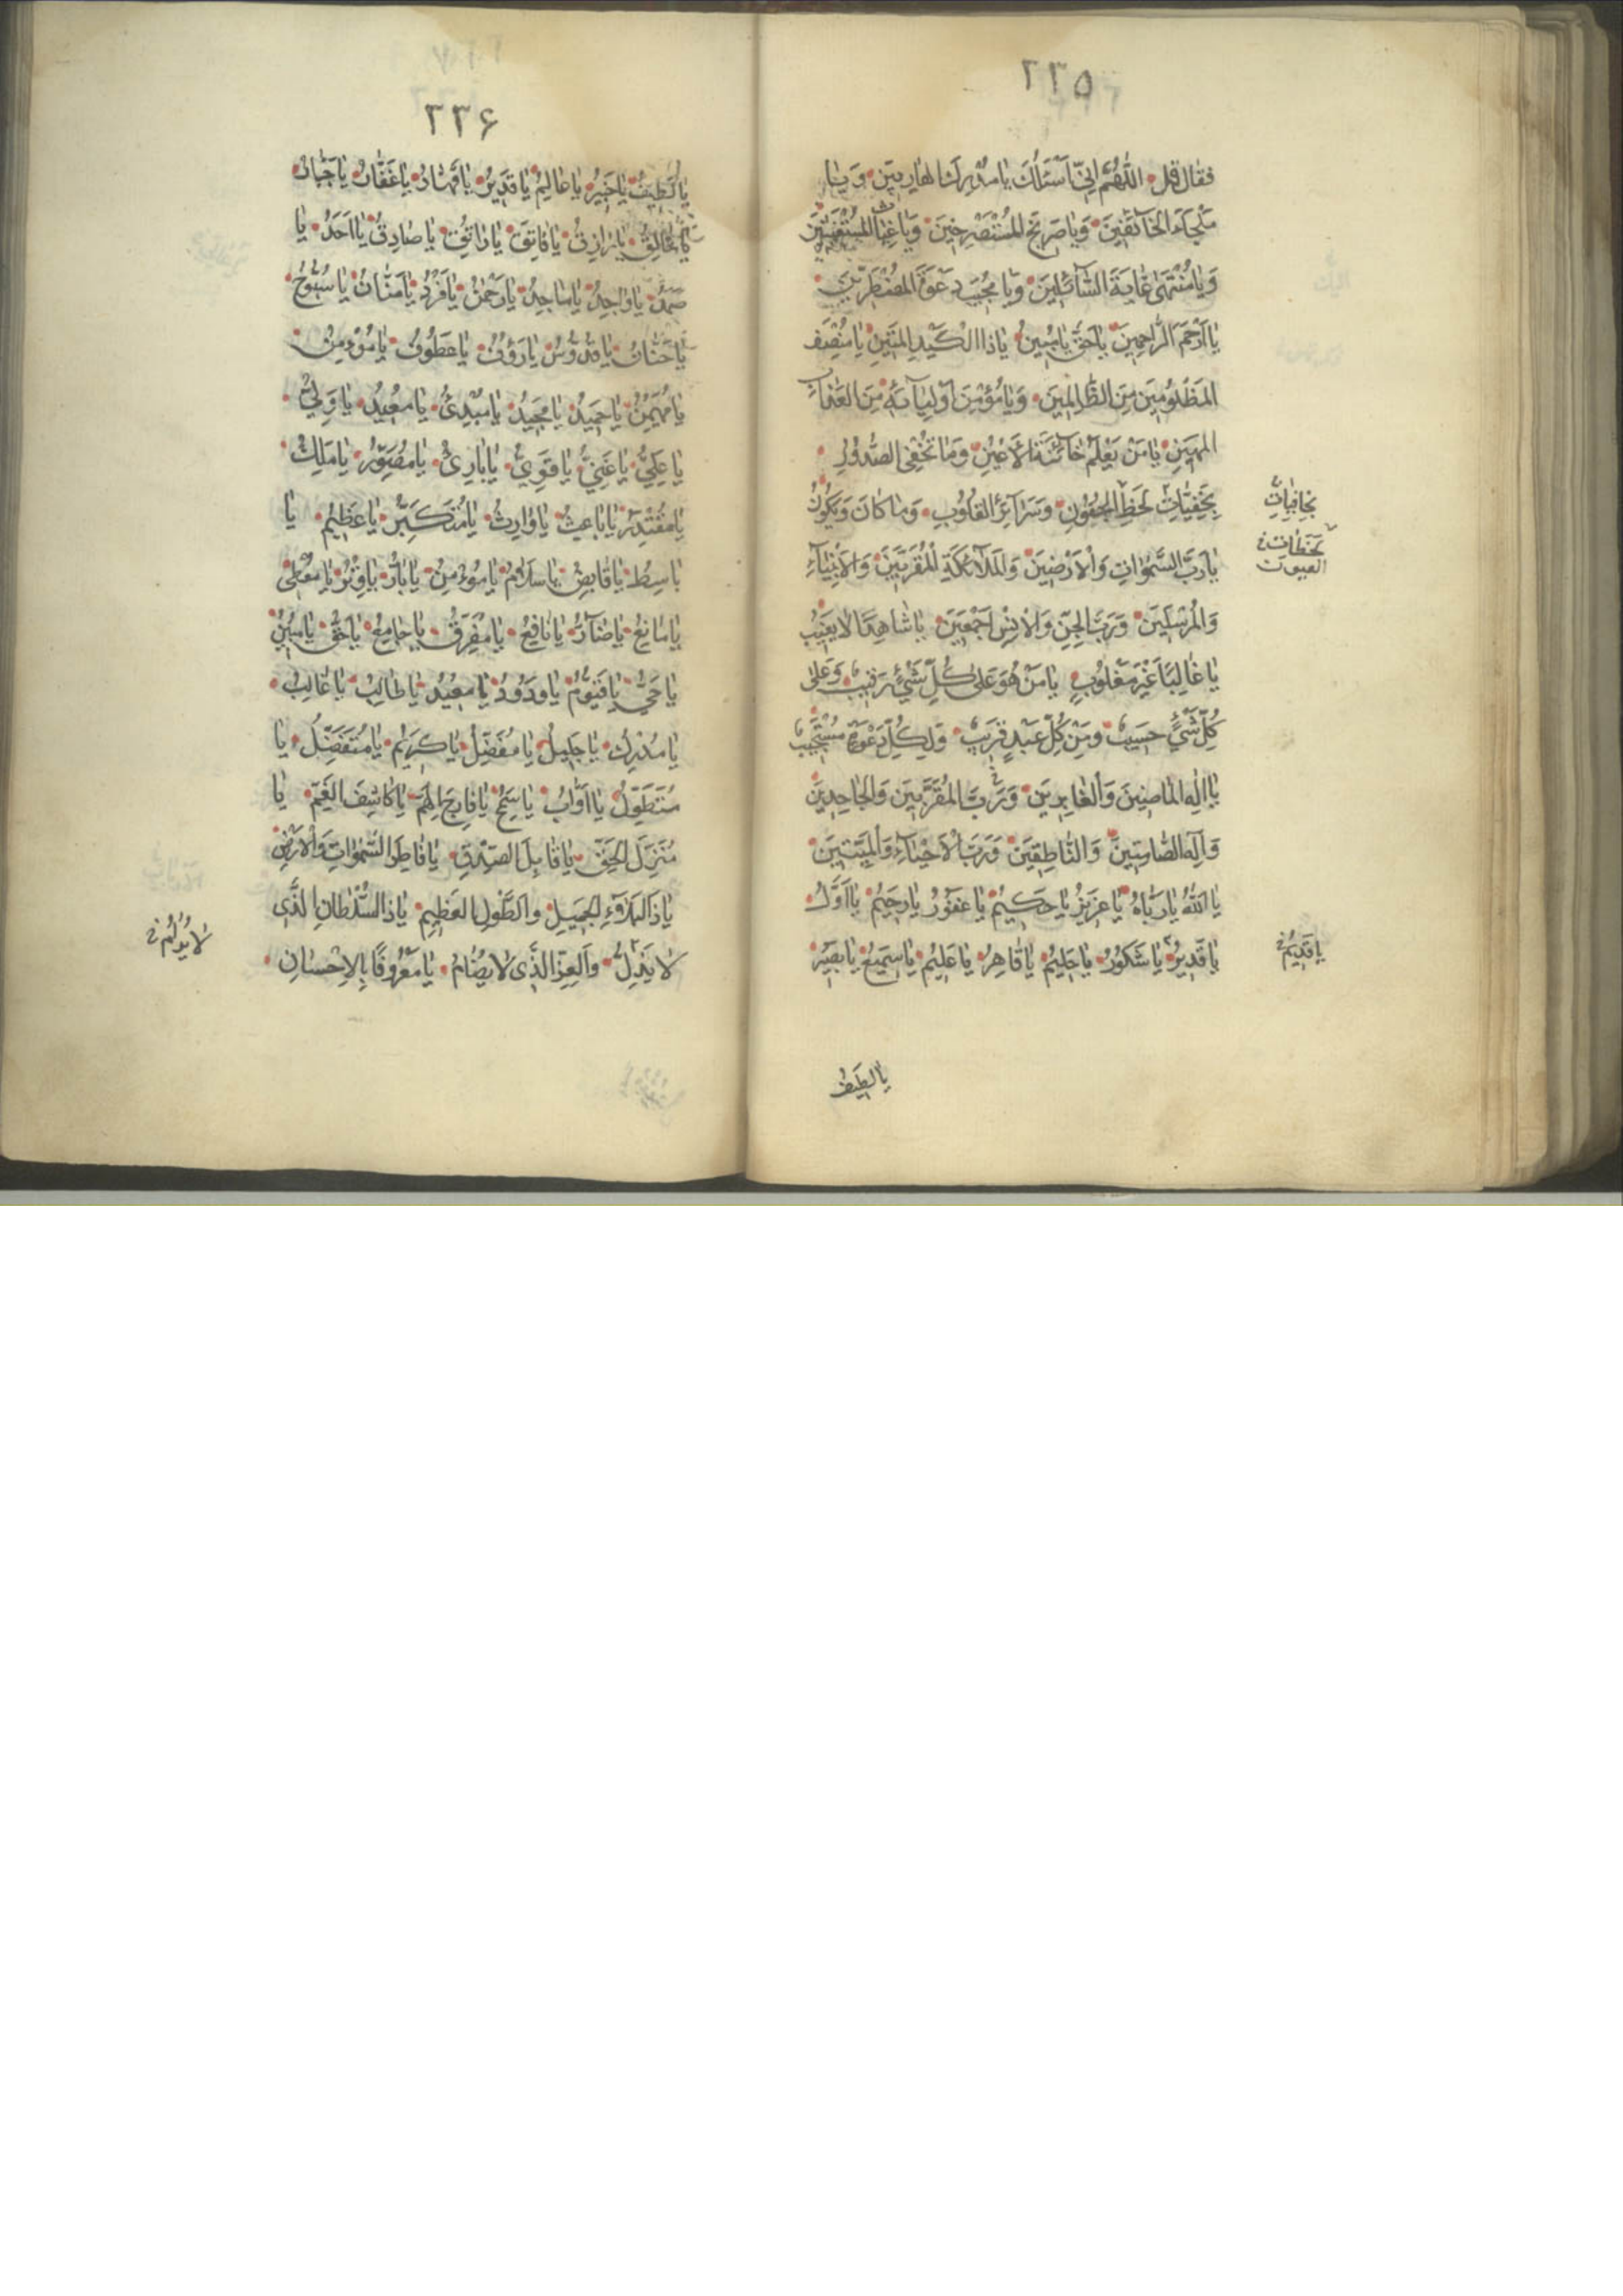 ٢٣٥
فقال قل اللّٰهُمَّ اِنّي اَسْئَلُكَ يا مُدْرِكَ الهارِبينَ وَيا
مَلْجَاءَ الخائِفينَ وَيا صَريخَ المُسْتَصْرِخينَ وَيا غِياثَ المُسْتَغيثينَ
وَيا مُنْتَهىٰ غايَةَ السّائِلينَ وَيا مُجيبَ دَعْوَةَ المُضْطَرّينَ
يا اَرْحَمَ الرّاحِمينَ يا حَقُّ يا مُبينُ يا ذا الْكَيْدِ المَتينِ يا مُنْصِفَ
المَظْلُومينَ مِنَ الظّالِمينَ وَيا مُؤْمِنَ اَوْلِيائِهِ مِنَ العَذابِ
المُهينِ يا مَنْ يَعْلَمُ خائِنَةَ الاَعْيُنِ وَما تُخْفِى الصُّدُورُ
بِخَفِيّاتِ لَحْظِ الجُفُونِ وَسَرائِرِ القُلُوبِ وَما كانَ وَيَكُونُ
بخافيات
لَحَظاتِ
العيون
يا رَبَّ السَّمٰواتِ وَالاَرَضينَ وَالمَلائِكَةِ الْمُقَرَّبينَ وَالاَنْبِياءِ
وَالمُرْسَلينَ وَرَبَّ الجِنِّ وَالاِنْسِ اَجْمَعينَ يا شاهِدًا لا يَغيبُ
يا غالِبًا غَيْرَ مَغْلُوبٍ يا مَنْ هُوَ عَلىٰ كُلِّ شَيْءٍ رَقيبٌ وَعَلىٰ
كُلِّ شَيْءٍ حَسيبٌ وَمِنْ كُلِّ عَبْدٍ قَريبٌ وَلِكُلِّ دَعْوَةٍ مُسْتَجيبٌ
يا اِلٰهَ الماضينَ وَالغابِرينَ وَرَبَّ المُقَرَّبينَ وَالجاحِدينَ
وَاِلٰهَ الصّامِتينَ وَالنّاطِقينَ وَرَبَّ الاَحْياءِ وَالمَيِّتينَ
يا اَللّٰهُ يا رَبّاهُ يا عَزيزُ يا حَكيمُ يا غَفُورُ يا رَحيمُ يا اَوَّلُ
يا قَديرُ يا شَكُورُ يا حَليمُ يا قاهِرُ يا عَليمُ يا سَميعُ يا بَصيرُ
يا قَديمُ
يا لطيف
٢٣۶
يا لَطيفُ يا خَبيرُ يا عالِمُ يا قَديرُ يا قَهّارُ يا غَفّارُ يا جَبّارُ
يا خالِقُ يا رازِقُ يا فاتِقُ يا راتِقُ يا صادِقُ يا اَحَدُ يا
صَمَدُ يا واحِدُ يا ماجِدُ يا رَحْمٰنُ يا فَرْدُ يا مَنّانُ يا سُبُّوحُ
يا حَنّانُ يا قُدُّوسُ يا رَؤُفُ يا عَطُوفُ يا مُؤْمِنُ
يا مُهَيْمِنُ يا حَميدُ يا مَجيدُ يا مُبْدِئُ يا مُعيدُ يا وَلِيُّ
يا عَلِيُّ يا غَنِيُّ يا قَوِيُّ يا بارِئُ يا مُصَوِّرُ يا مَلِكُ
يا مُقْتَدِرُ يا باعِثُ يا وارِثُ يا مُتَكَبِّرُ يا عَظيمُ يا
باسِطُ يا قابِضُ يا سَلامُ يا مُؤْمِنُ يا بارُّ يا وِتْرُ يا مُعْطى
يا مانِعُ يا ضارُّ يا نافِعُ يا مُفَرِّقُ يا جامِعُ يا حَقُّ يا مُبينُ
يا حَيُّ يا قَيُّومُ يا وَدُودُ يا مُعيدُ يا طالِبُ يا غالِبُ
يا مُدْرِكُ يا جَليلُ يا مُفْضِلُ يا كَريمُ يا مُتَفَضِّلُ يا
مُتَطَوِّلُ يا اَوّابُ يا سَمِحُ يا فارِجَ الهَمِّ يا كاشِفَ الغَمِّ يا
مُنْزِلَ الحَقِّ يا قابِلَ الصِّدْقِ يا فاطِرَ السَّمٰواتِ وَالاَرْضِ
يا ذَا البَلاءِ الجَميلِ والطَّوْلِ العَظيمِ يا ذا السُّلْطانِ الَّذى
لا يَذِلُّ وَالعِزِّ الَّذى لا يُضامُ يا مَعْرُوفًا بِالاِحْسانِ